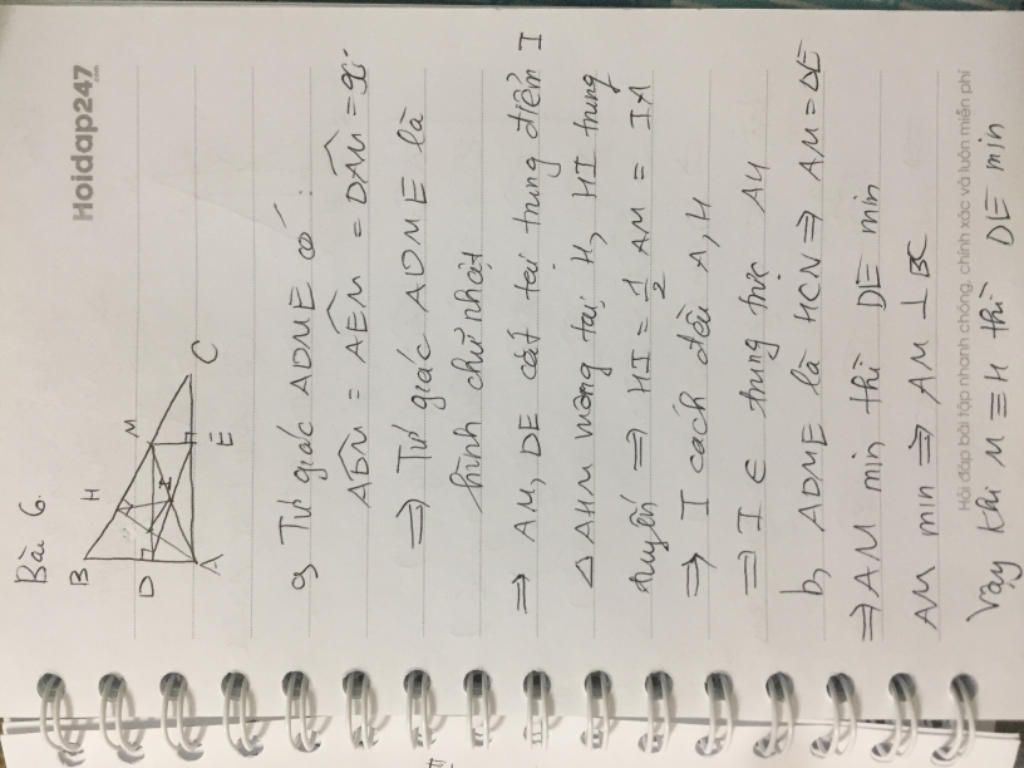 Hoidap247
.com
Bài 6.
B
H
M
D
I
A
E
C
a, Tứ giác ADME có :
ADM = AEM = DAM = 90°
⇒ Tứ giác ADME là
hình chữ nhật
⇒ AM, DE cắt tại trung điểm I
△ AHM vuông tại H, HI trung
tuyến ⇒ HI = 1/2 AM = IA
⇒ I cách đều A, H
⇒ I ∈ trung trực AH
b, ADME là HCN ⇒ AM = DE
⇒ AM min thì DE min
AM min ⇒ AM ⊥ BC
Hỏi đáp bài tập nhanh chóng, chính xác và luôn miễn phí
Vậy khi M ≡ H thì DE min